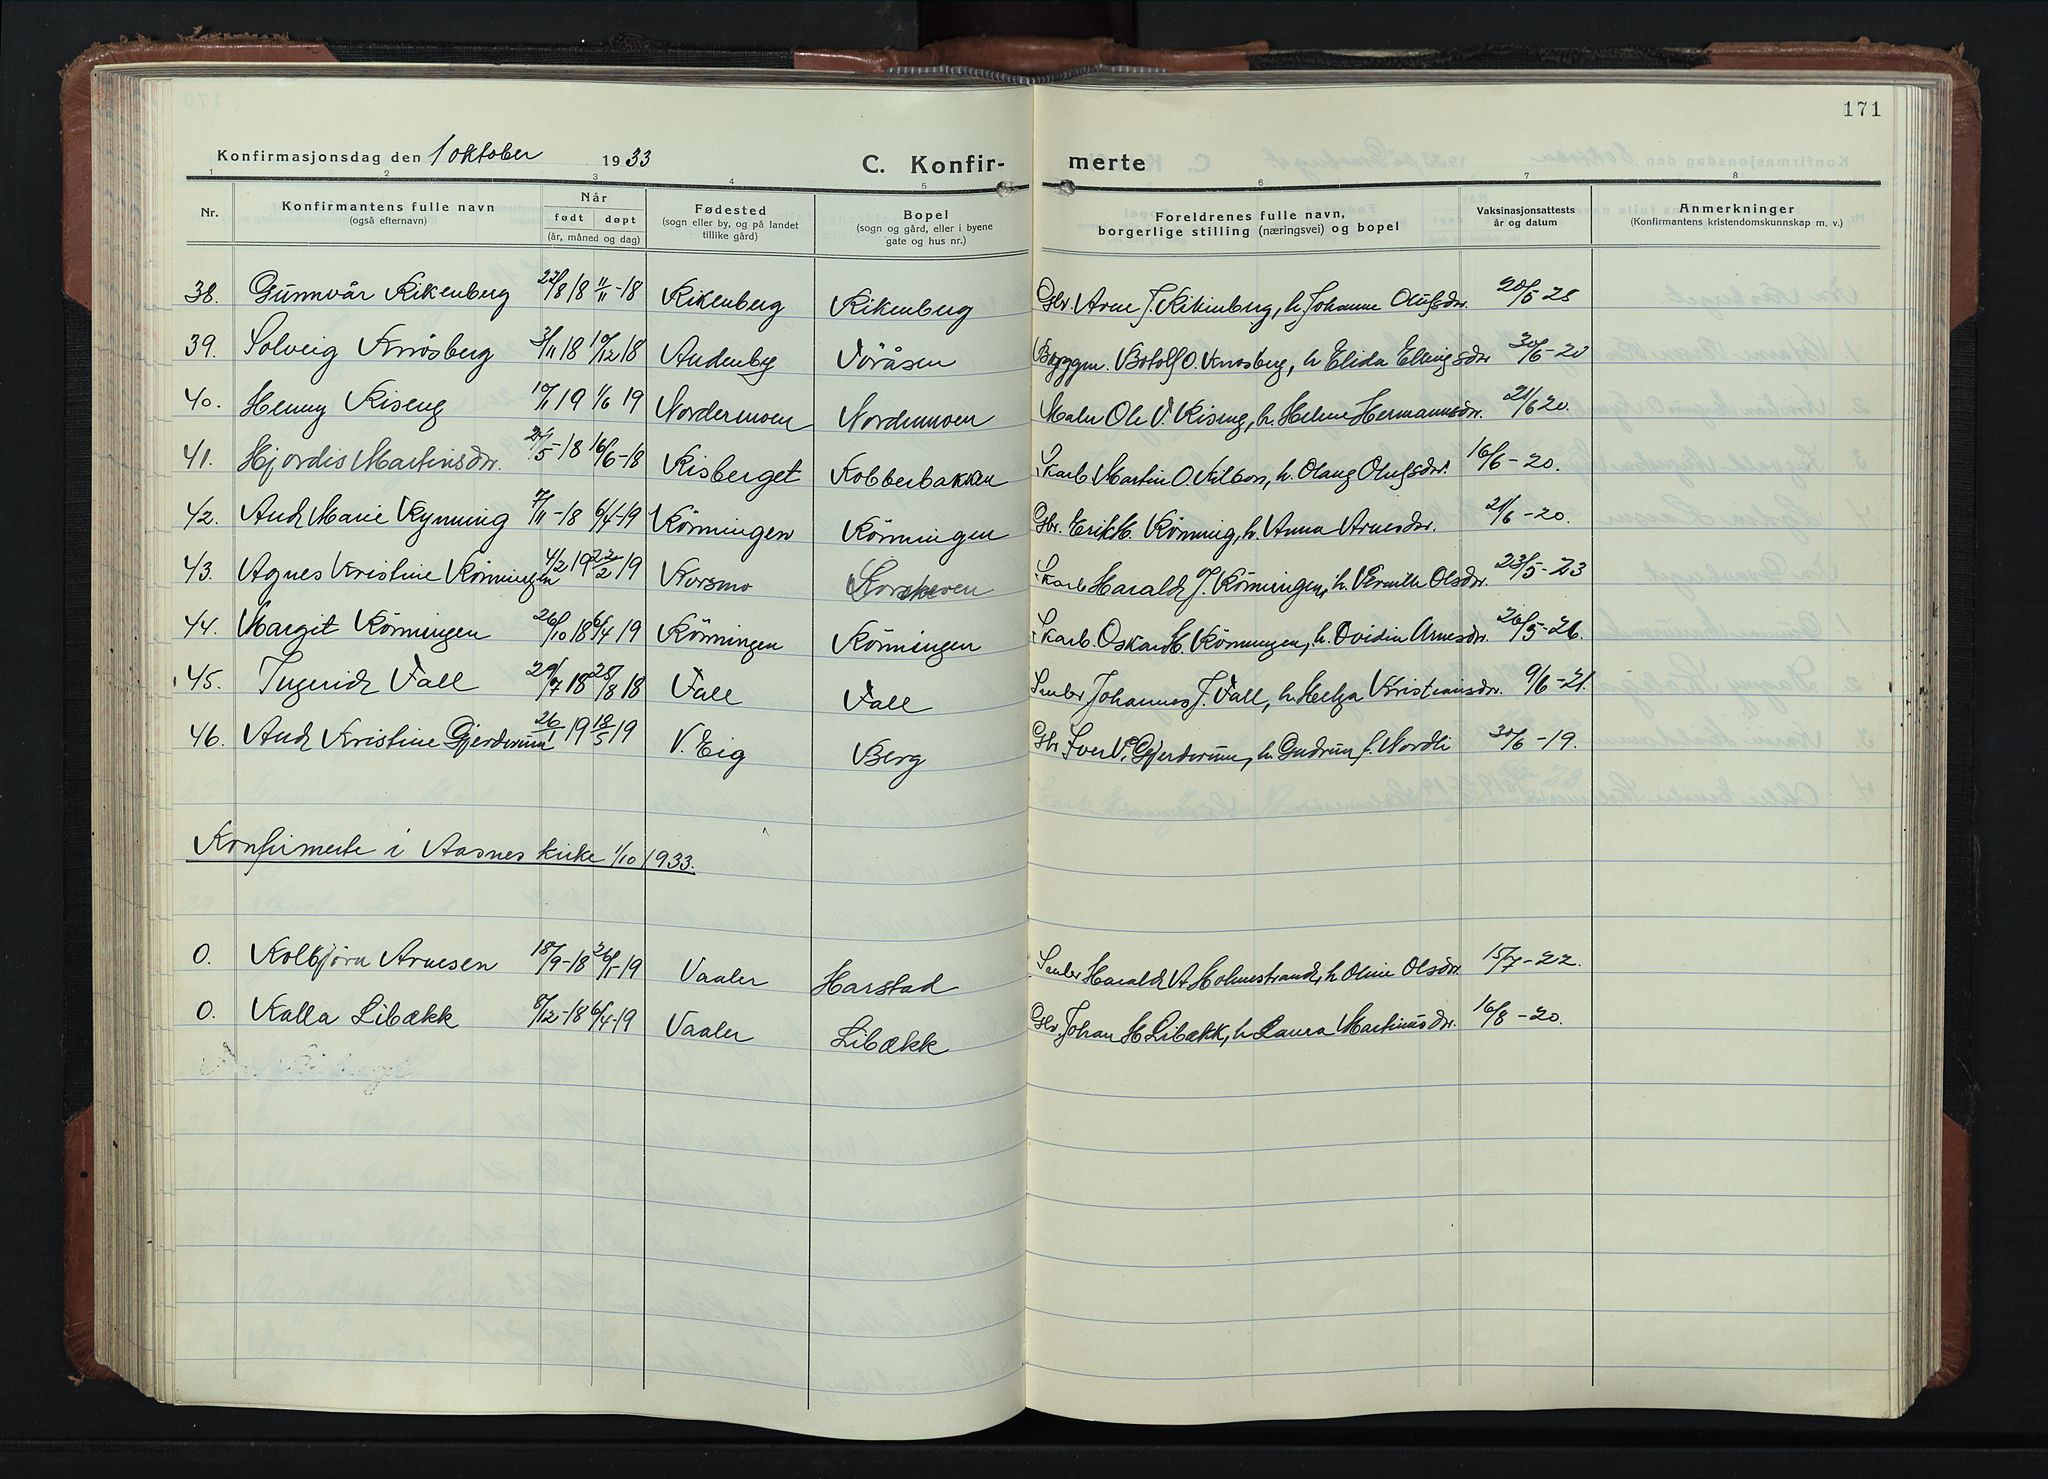 171
Konfirmasjonsdag den 1 oktober 1933
C. Konfir- merte
1 2 3 4 5 6 7 8
Nr. Konfirmantens fulle navn (også efternavn) Når født døpt (år, måned og dag) Fødested (sogn eller by, og på landet tillike gård) Bopel (sogn og gård, eller i byene gate og hus nr.) Foreldrenes fulle navn, borgerlige stilling (næringsvei) og bopel Vaksinasjonsattests år og datum Anmerkninger (Konfirmantens kristendomskunnskap m. v.)
38. Gunnvår Rikenberg 22/8 18 11/11-18 Rikenberg Rikenberg Gbr Arne J. Rikenberg, h. Johanne Olufsdr. 20/5-25
39. Solveig Knosberg 3/11 18 19/12 18 Audenby Vöråsen Byggm. Botolf O. Knosberg, h Elida Ellingsdr 30/6-20
40. Henny Riseng 19/1 19 1/6 19 Nordermoen Nordermoen Maler Ole V. Riseng, h. Helene Hermannsdr. 21/6 20.
41. Hjördis Martinsdr. 21/5-18 16/6-18 Risberget Kobberbakken Skarb Martin O. Nilsen, h. Olaug Olufsdr. 16/6-20.
42. Aud Marie Rynning 7/11-18 6/4-19 Rönningen Rönningen Gbr. Erik H. Rönning, h. Anna Arnesdr. 21/6-20.
43. Agnes Kristine Rönningen 4/2 19 22/2 19 Norsmo Skarb Harald J. Rönningen, h. Olsdr. 23/5-23
44. Margit Rönningen 26/10 18 6/4 19 Rönningen Rönningen Skarb. Oskar H. Rönningen, h. Ovidia Arnesdr. 26/5-26.
45. Ingerid Fall 29/7 18 25/8 18 Fall Fall Smbr Johannes J. Fall, h. Helga Kristiansdr. 9/6-21.
46. Aud Kristine Gjerderum 26/1 19 18/5 19 V. Eig Berg Gbr Iver V. Gjerderum, h. Gudrun f. Nordli 30/6-19.
Konfirmerte i Aasnes kirke 1/10 1933.
0. Kolbjörn Arnesen 18/9-18 26/1-19 Vaaler Harstad Smbr Harald A Holmestrand, h Oline Olsdr. 15/7-22.
0. Kalla Libækk 8/12-18 6/4-19 Vaaler Libækk Gbr. Johan H. Libækk, h Laura Martinusdr. 16/8-20.